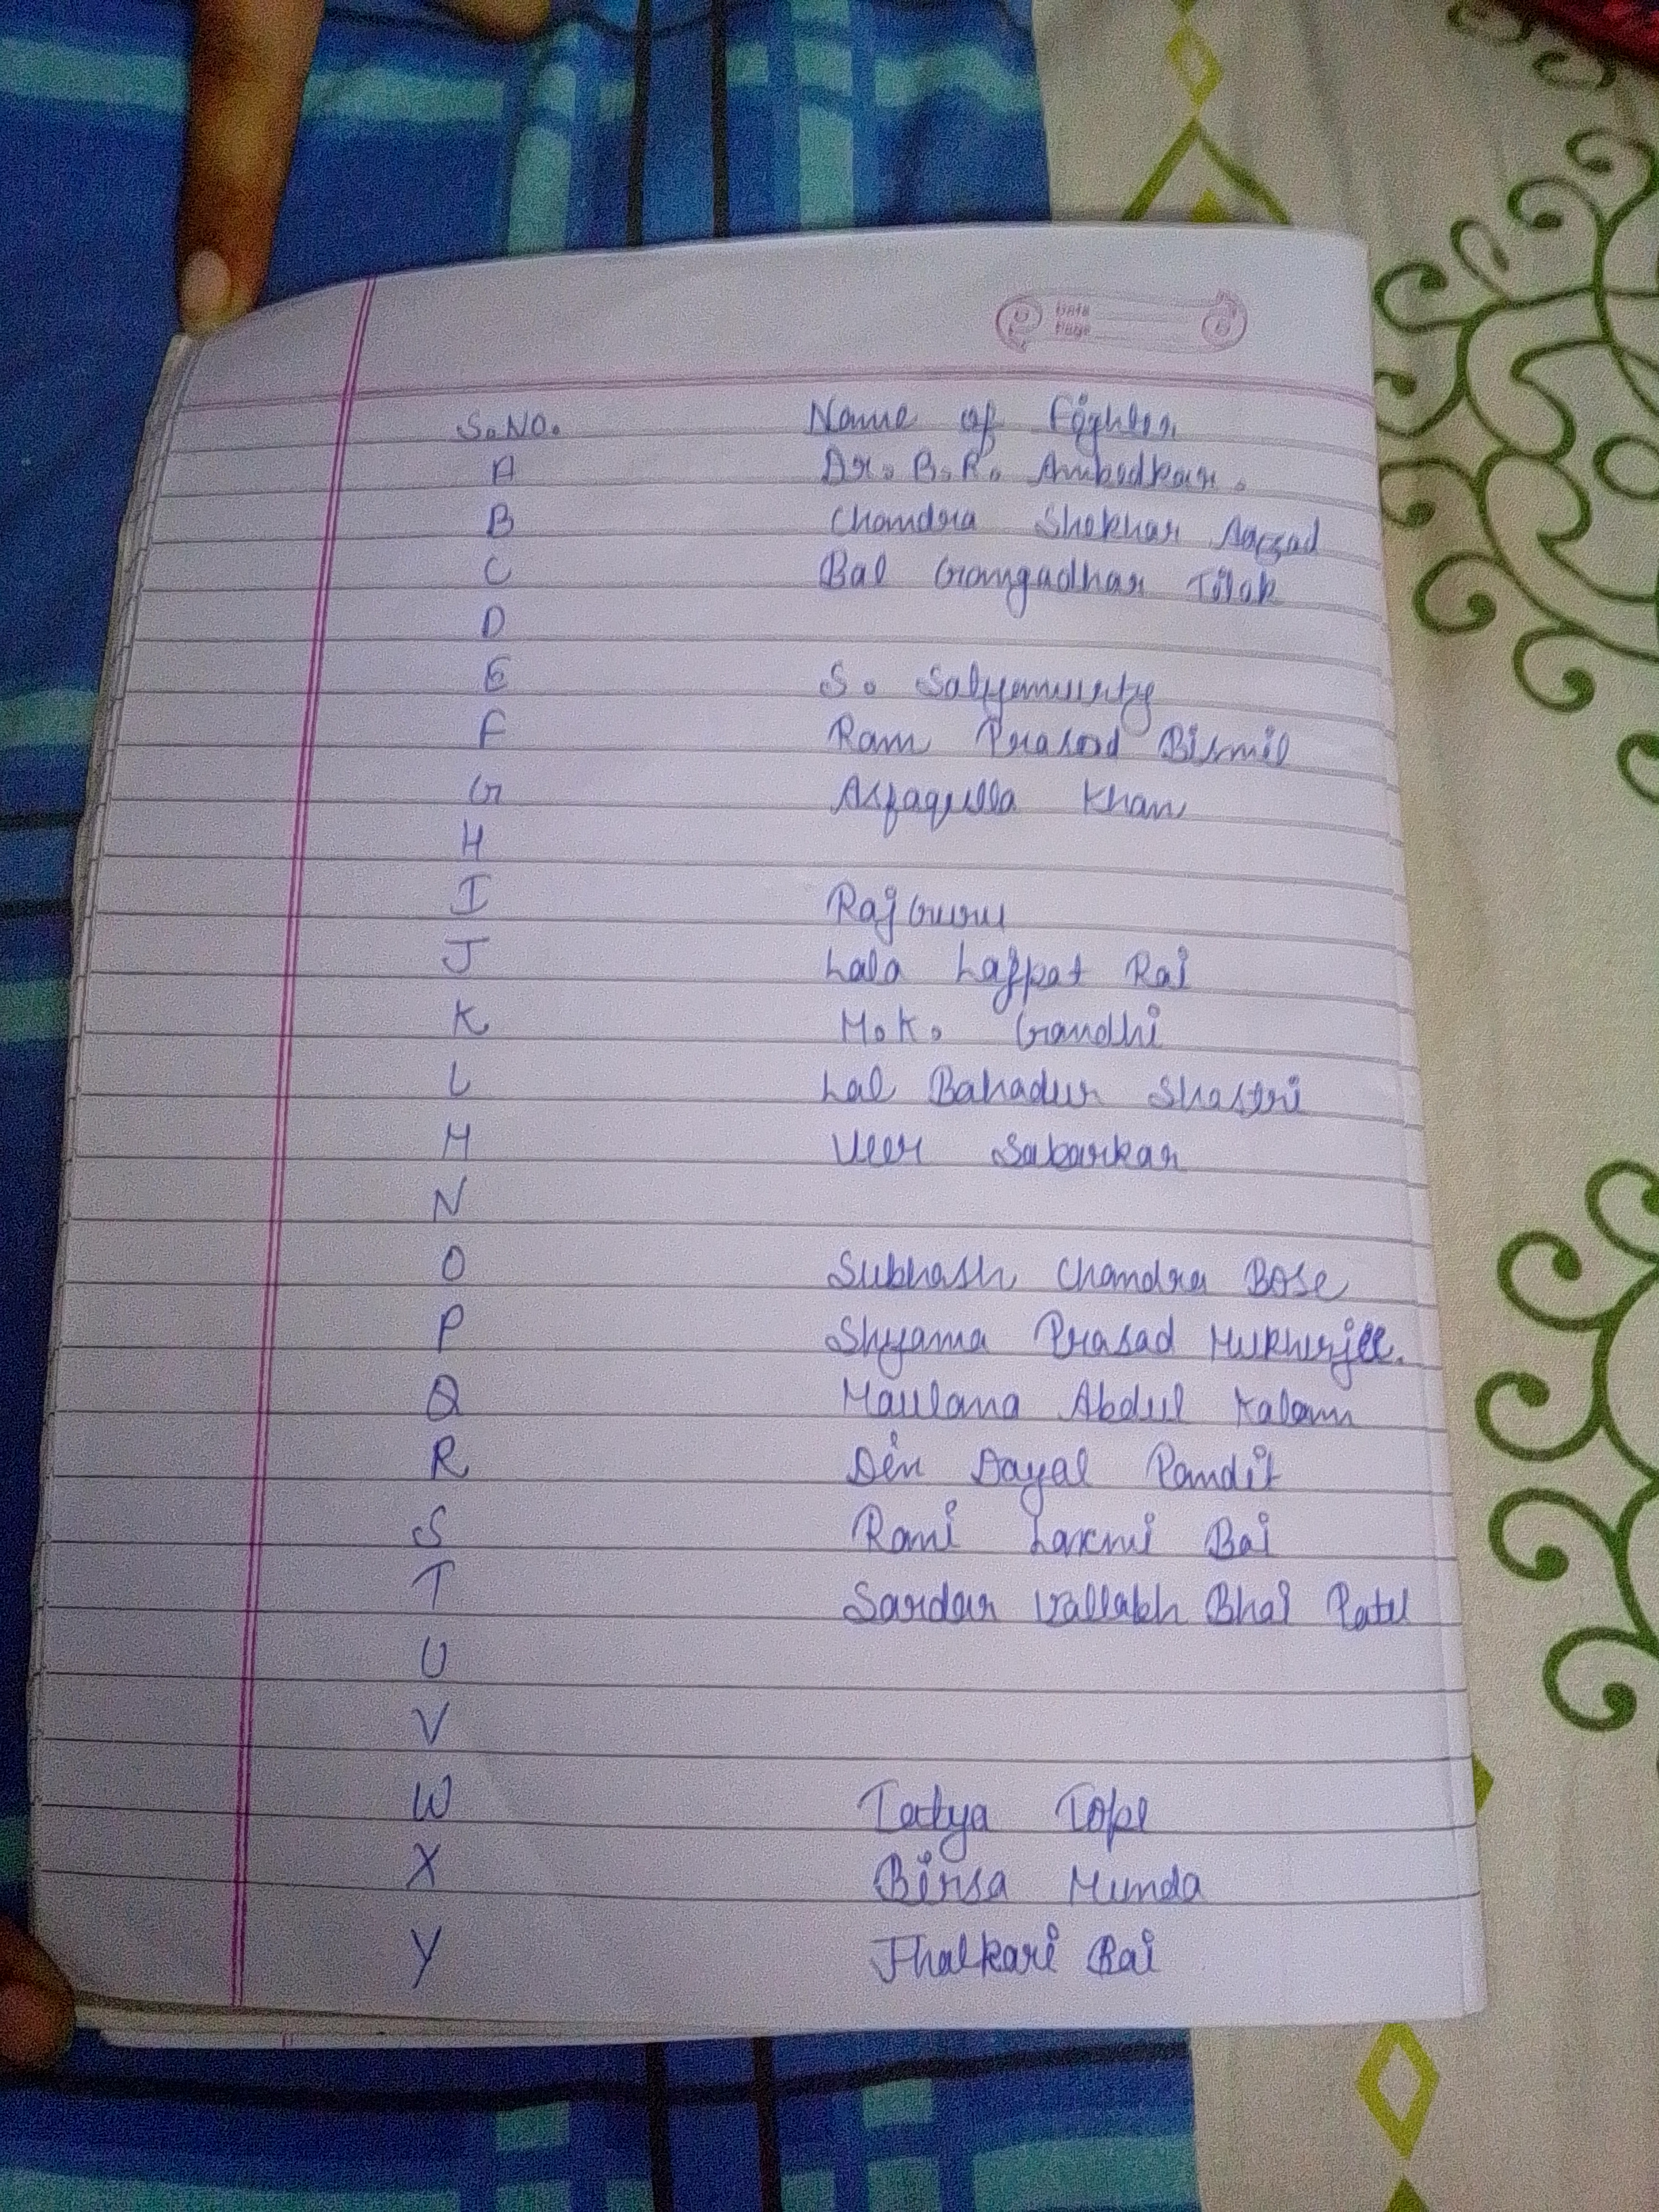 Date
Page
S.No. Name of Fighter
A Dr. B.R. Ambedkar.
B Chandra Shekhar Aazad
C Bal Gangadhar Tilak
D
E S. Satyamurty
F Ram Prasad Bismil
G Asfaqulla Khan
H
I RajGuru
J Lala Lajpat Rai
K M.K. Gandhi
L Lal Bahadur Shastri
M Veer Sabarkar
N
O Subhash Chandra Bose
P Shyama Prasad Mukherjee.
Q Maulana Abdul Kalam
R Din Dayal Pandit
S Rani Laxmi Bai
T Sardar Vallabh Bhai Patel
U
V
W Tatya Tope
X Birsa Munda
Y Jhalkari Bai